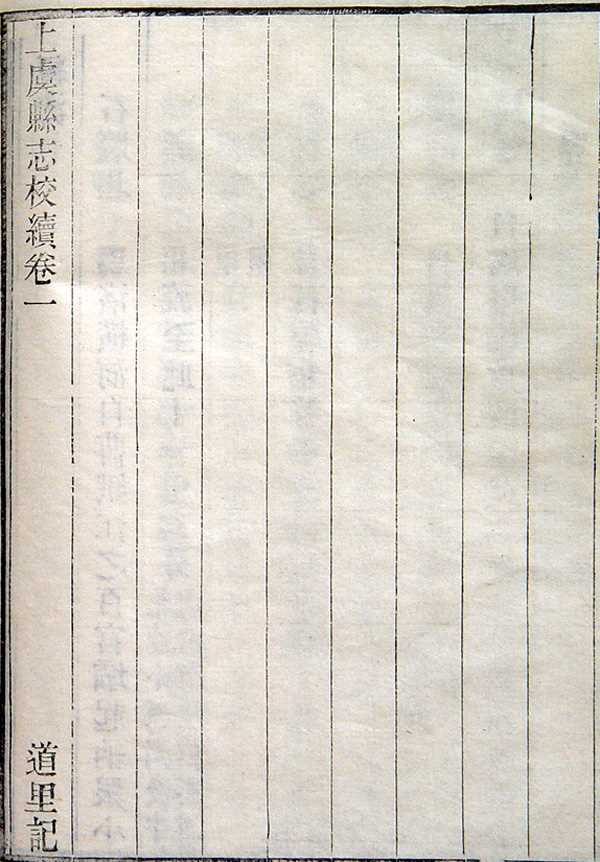 上虞縣志校續卷一
道里記